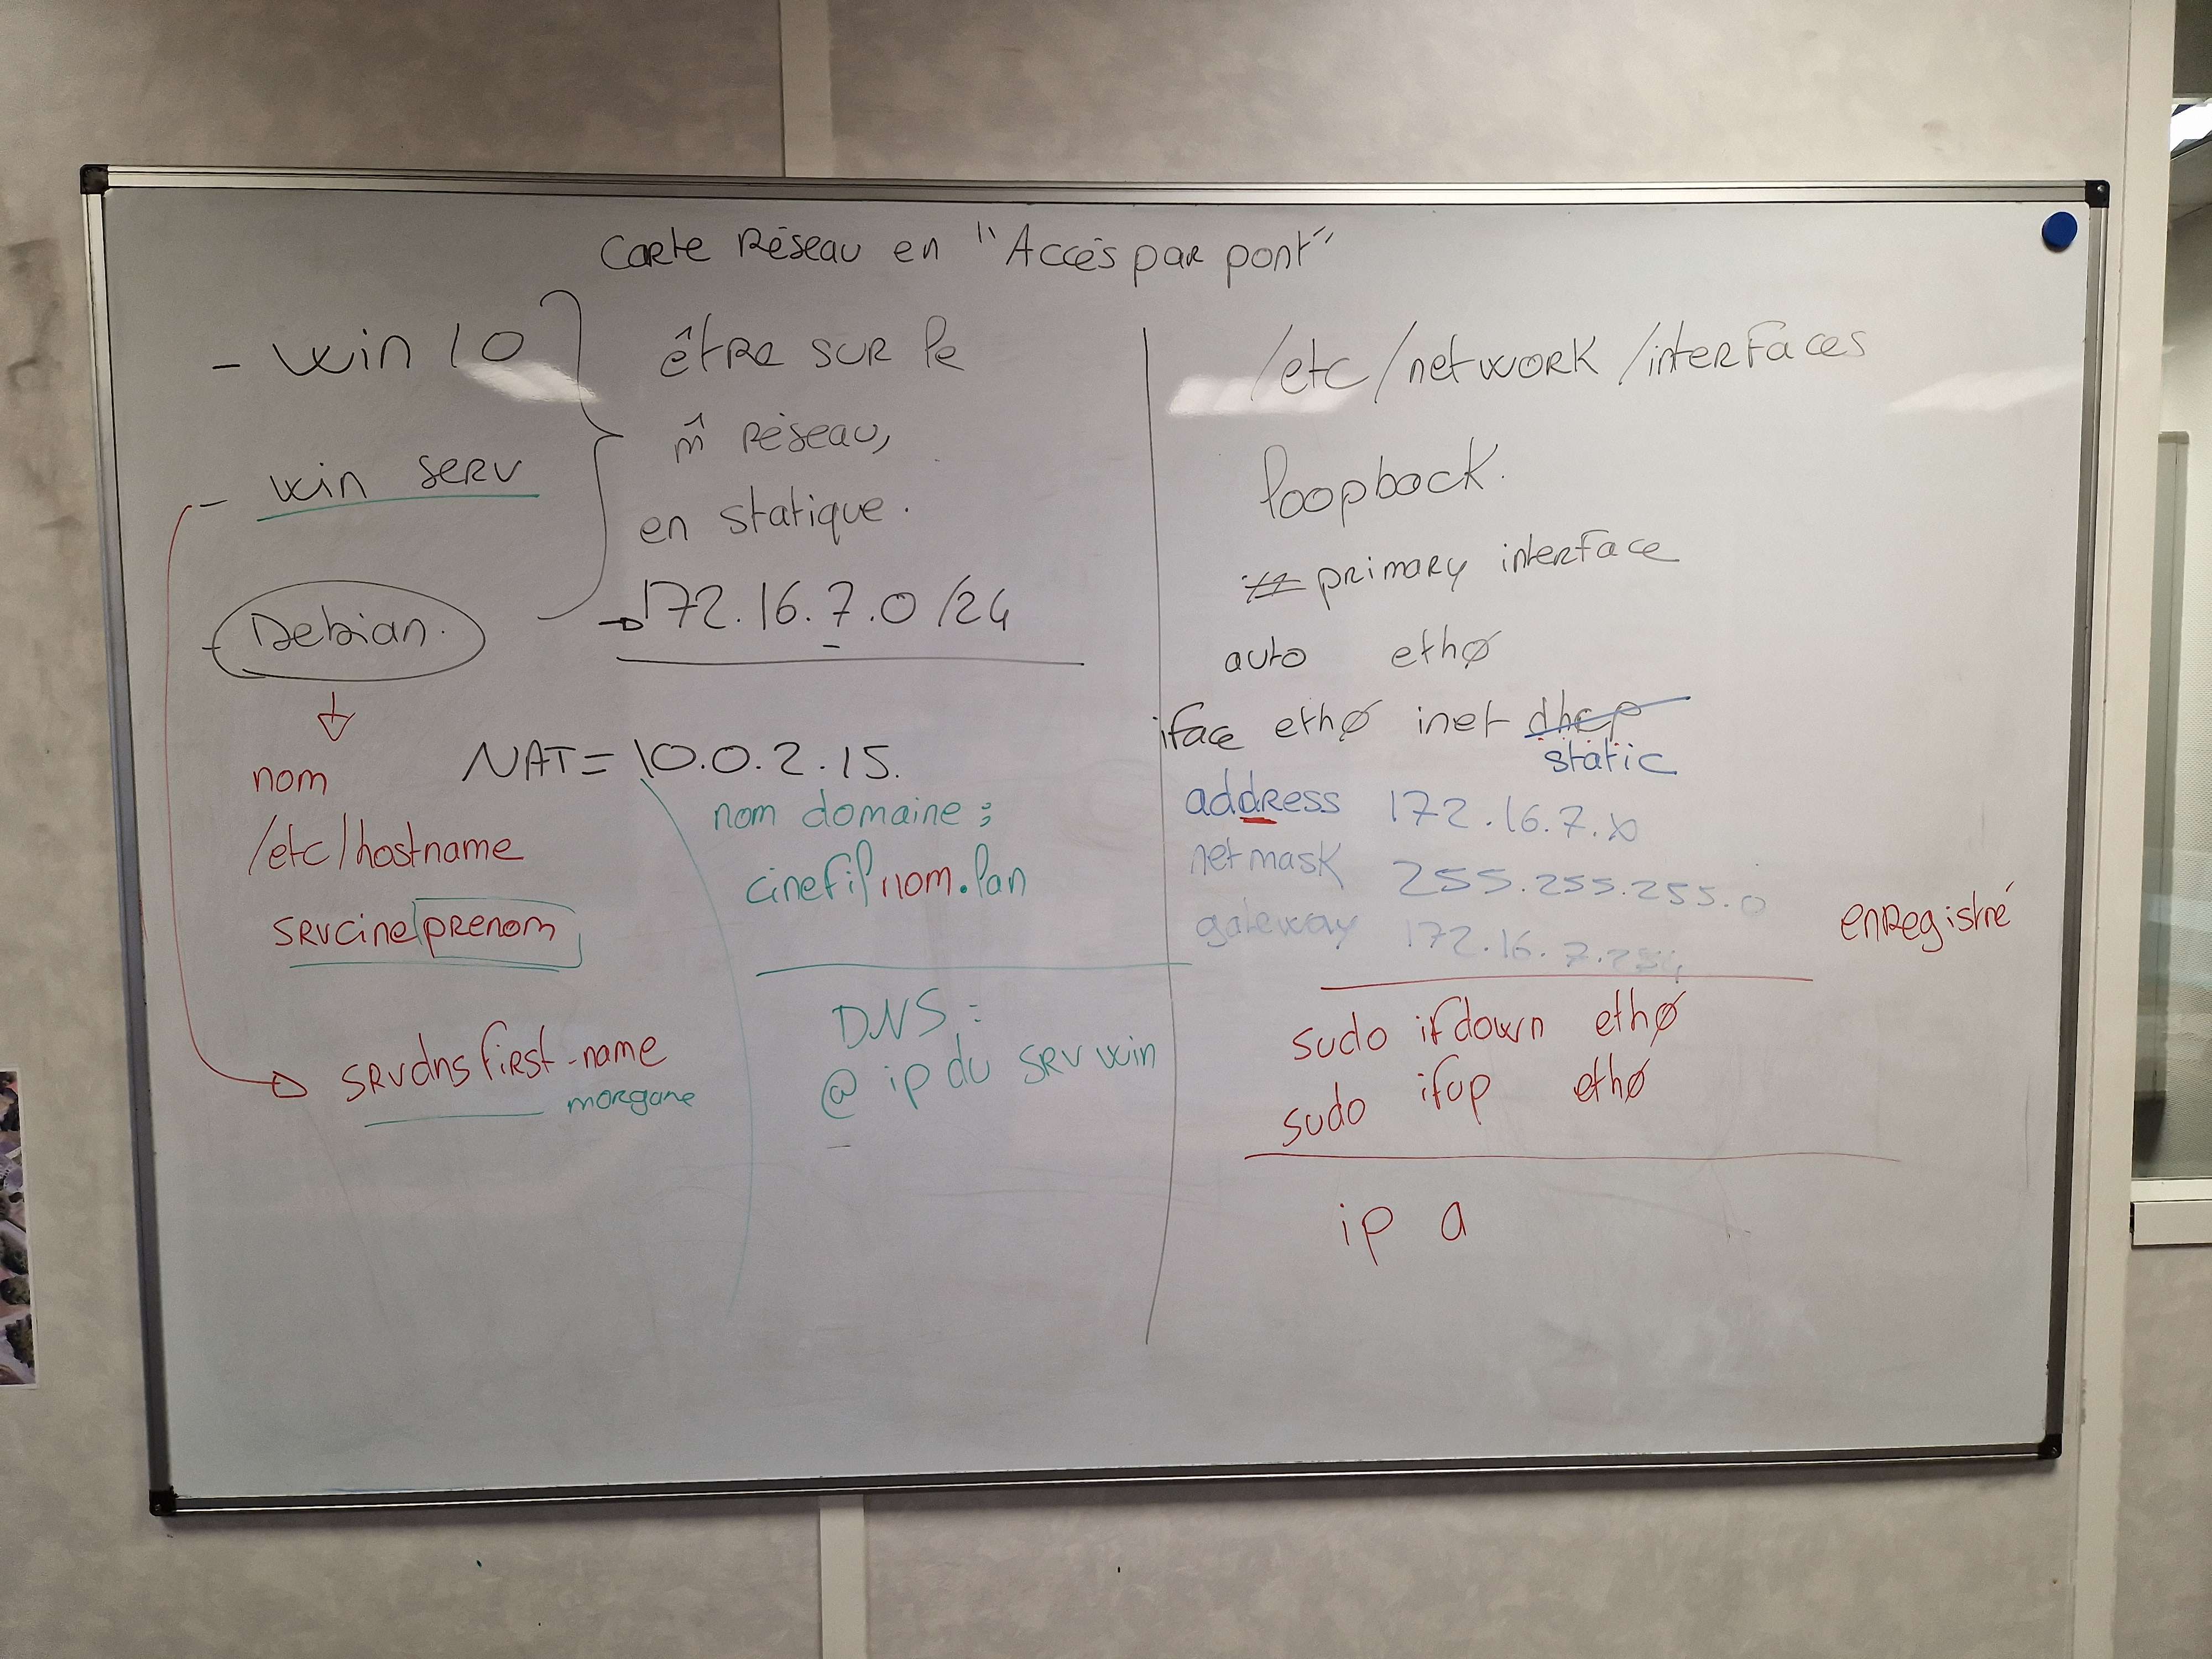 Carte Réseau en "Accès par pont"
- Win 10
- Win serv
- Debian.
être sur le
m̂ réseau,
en statique.
→ 172.16.7.0 /24
nom
/etc/hostname
srvcine prenom
srvdns first-name
morgane
NAT = 10.0.2.15.
nom domaine :
cinefilnom.lan
DNS :
@ ip du srv win
/etc/network/interfaces
loopback.
# primary interface
auto ethø
iface ethø inet dhcp
static
address 172.16.7.x
netmask 255.255.255.0
gateway 172.16.7.254
enregistré
sudo ifdown ethø
sudo ifup ethø
ip a